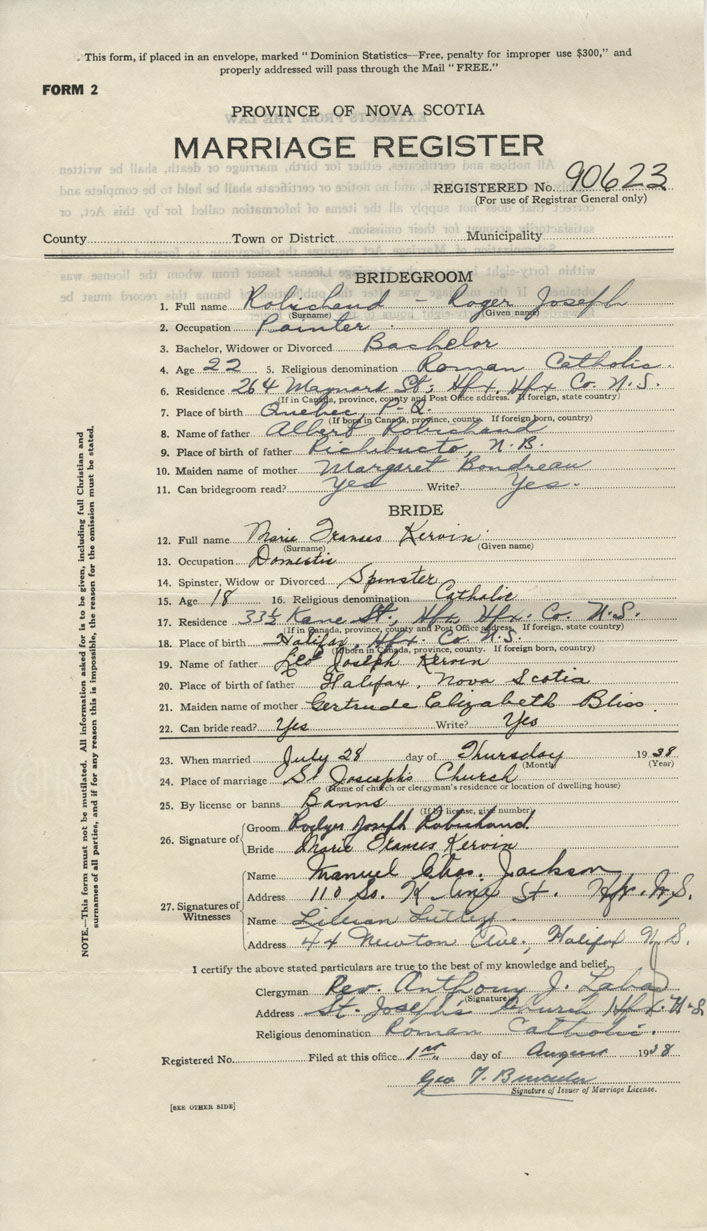 This form, if placed in an envelope, marked "Dominion Statistics—Free, penalty for improper use $300," and
properly addressed will pass through the Mail "FREE."
FORM 2
PROVINCE OF NOVA SCOTIA
MARRIAGE REGISTER
REGISTERED No. 90623
(For use of Registrar General only)
County Town or District Municipality
BRIDEGROOM
1. Full name Robichaud - Roger Joseph
(Surname) (Given name)
2. Occupation Painter
3. Bachelor, Widower or Divorced Bachelor
4. Age 22 5. Religious denomination Roman Catholic.
6. Residence 264 Maynard St; Hfx, Hfx Co. N.S.
(If in Canada, province, county and Post Office address. If foreign, state country)
7. Place of birth Quebec, P-Q.
(If born in Canada, province, county. If foreign born, country)
8. Name of father Albert Robichaud
9. Place of birth of father Richibucto, N.B.
10. Maiden name of mother Margaret Boudreau
11. Can bridegroom read? Yes Write? Yes.
BRIDE
12. Full name Marie Frances Kervin
(Surname) (Given name)
13. Occupation Domestic
14. Spinster, Widow or Divorced Spinster
15. Age 18 16. Religious denomination Catholic
17. Residence 33½ Kane St., Hfx, Hfx. Co. N.S.
(If in Canada, province, county and Post Office address. If foreign, state country)
18. Place of birth Halifax, Hfx. Co. N.S.
(If born in Canada, province, county. If foreign born, country)
19. Name of father Leo Joseph Kervin
20. Place of birth of father Halifax, Nova Scotia
21. Maiden name of mother Gertrude Elizabeth Bliss
22. Can bride read? Yes Write? Yes
23. When married July 28 day of Thursday 1938
(Month) (Year)
24. Place of marriage St Joseph's Church
(Name of church or clergyman's residence or location of dwelling house)
25. By license or banns Banns
(If by license, give number)
26. Signature of
Groom Joseph Robichaud
Bride Marie Frances Kervin
27. Signatures of Witnesses
Name Manuel Chas. Jackson
Address 110 So. St. Hfx. N.S.
Name Lillian
Address 44 Newton Ave, Halifax N.S.
I certify the above stated particulars are true to the best of my knowledge and belief.
Clergyman Rev. Anthony J.
(Signature)
Address St. Joseph's Church Hfx. N.S
Religious denomination Roman Catholic.
Registered No. Filed at this office 1st day of August 1938
Geo
Signature of Issuer of Marriage License.
[SEE OTHER SIDE]
NOTE.—This form must not be mutilated. All information asked for is to be given, including full Christian and
surnames of all parties, and if for any reason this is impossible, the reason for the omission must be stated.